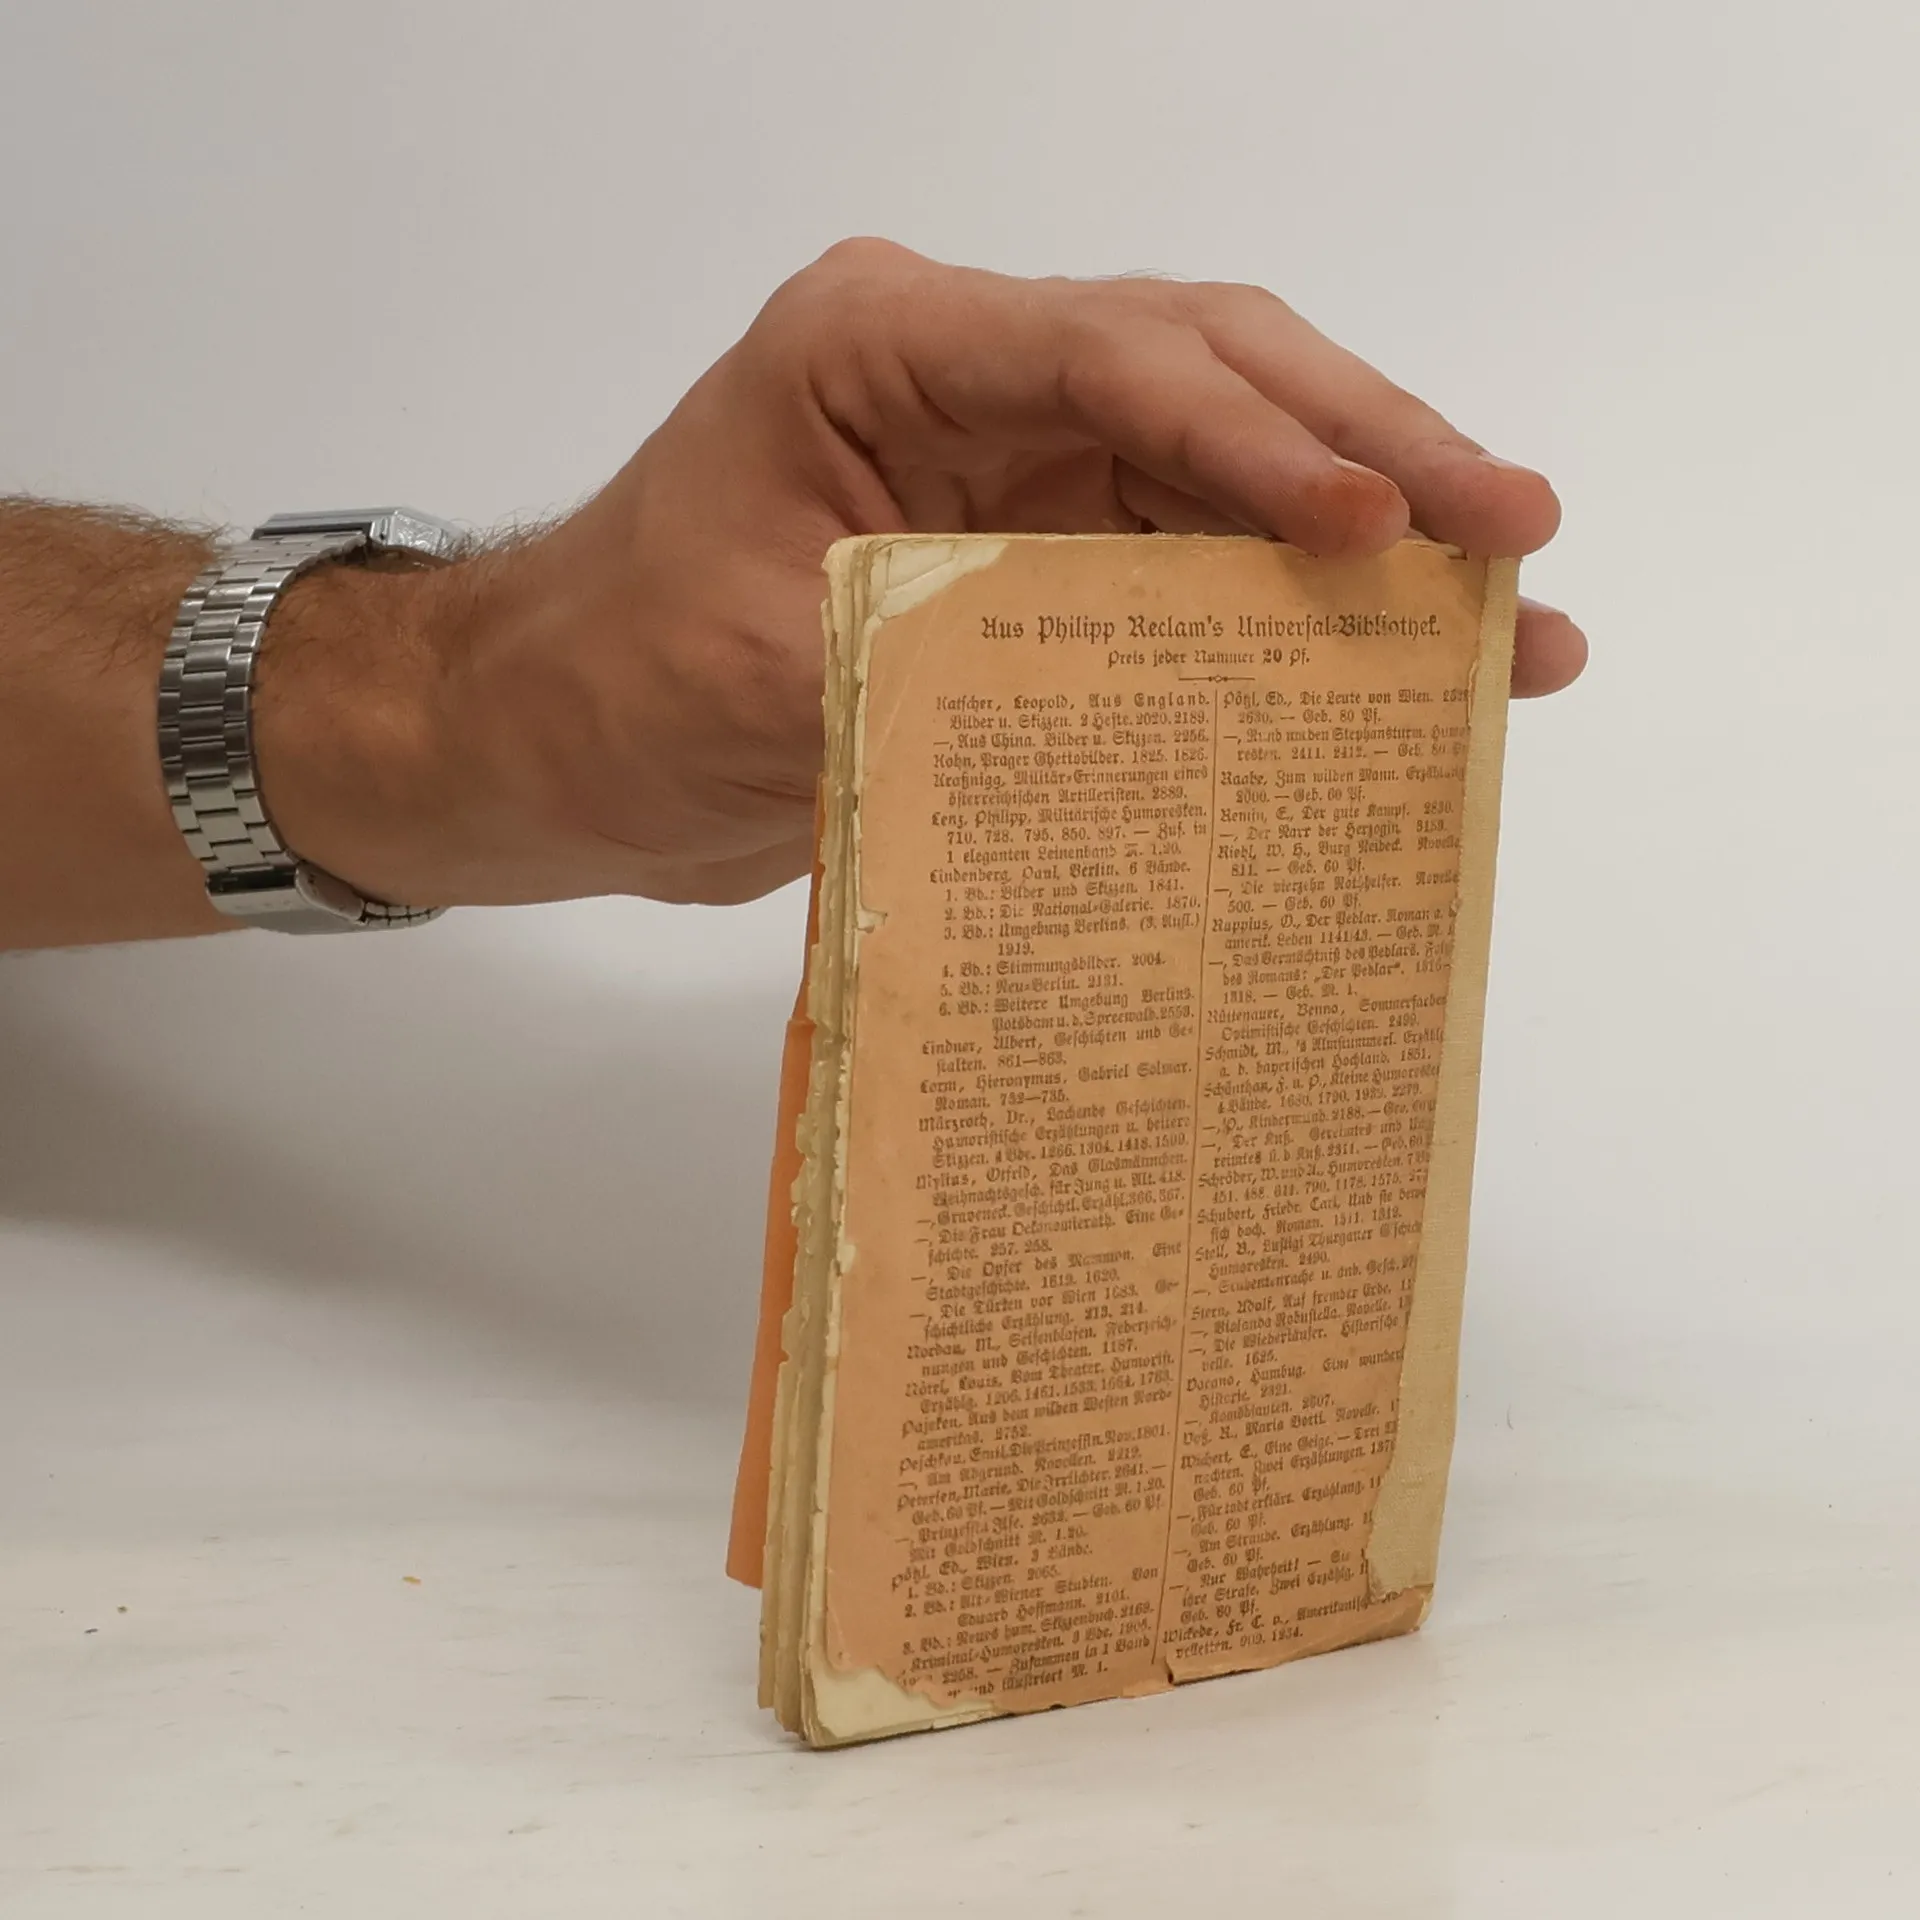 Aus Philipp Reclam's Universal-Bibliothek.
Preis jeder Nummer 20 Pf.
Katscher, Leopold, Aus England.
Bilder u. Skizzen. 2 Hefte. 2020. 2189.
—, Aus China. Bilder u. Skizzen. 2256.
Kohn, Prager Ghettobilder. 1825. 1826.
Kraßnigg, Militär-Erinnerungen eines
österreichischen Artilleristen. 2889.
Lenz, Philipp, Militärische Humoresken.
710. 728. 795. 850. 897. — Zus. in
1 eleganten Leinenband M. 1.20.
Lindenberg, Paul, Berlin. 6 Bände.
1. Bd.: Bilder und Skizzen. 1841.
2. Bd.: Die National-Galerie. 1870.
3. Bd.: Umgebung Berlins. (3. Aufl.)
1919.
4. Bd.: Stimmungsbilder. 2004.
5. Bd.: Neu-Berlin. 2131.
6. Bd.: Weitere Umgebung Berlins.
Potsdam u. d. Spreewald. 2553.
Lindner, Albert, Geschichten und Ge-
stalten. 861—863.
Lorm, Hieronymus, Gabriel Solmar.
Roman. 732—735.
Märzroth, Dr., Lachende Geschichten.
Humoristische Erzählungen u. heitere
Skizzen. 4 Bde. 1266. 1304. 1418. 1509.
Mylius, Otfrid, Das Glasmännchen.
Weihnachtsgesch. für Jung u. Alt. 418.
—, Graveneck. Geschichtl. Erzähl. 366. 367.
—, Die Frau Oekonomierath. Eine Ge-
schichte. 257. 258.
—, Die Opfer des Mammon. Eine
Stadtgeschichte. 1619. 1620.
—, Die Türken vor Wien 1683. Ge-
schichtliche Erzählung. 213. 214.
Nordau, M., Seifenblasen. Federzeich-
nungen und Geschichten. 1187.
Nötel, Louis, Vom Theater. Humorist.
Erzählg. 1206. 1461. 1533. 1664. 1763.
Pajeken, Aus dem wilden Westen Nord-
amerikas. 2752.
Peschkau, Emil, Die Prinzessin. Nov. 1801.
—, Am Abgrund. Novellen. 2219.
Petersen, Marie, Die Irrlichter. 2641. —
Geb. 60 Pf. — Mit Goldschnitt M. 1.20.
—, Prinzessin Ilse. 2632. — Geb. 60 Pf.
Mit Goldschnitt M. 1.20.
Pötzl, Ed., Wien. 3 Bände.
1. Bd.: Skizzen. 2065.
2. Bd.: Alt-Wiener Studien. Von
Eduard Hoffmann. 2101.
3. Bd.: Neues hum. Skizzenbuch. 2169.
Kriminal-Humoresken. 3 Bde. 1905.
2258. — Zusammen in 1 Band
und illustriert M. 1.
Pötzl, Ed., Die Leute von Wien.
2630. — Geb. 80 Pf.
—, Rund um den Stephansturm.
resken. 2411. 2412. — Geb. 80
Raabe, Zum wilden Mann. Erzählung
2000. — Geb. 60 Pf.
Remin, E., Der gute Kampf. 2830.
—, Der Narr der Herzogin. 3159.
Riehl, W. H., Burg Neideck. Novelle
811. — Geb. 60 Pf.
—, Die vierzehn Nothhelfer. Novelle
500. — Geb. 60 Pf.
Ruppius, O., Der Pedlar. Roman a. d.
amerik. Leben 1141/43. — Geb. M.
—, Das Vermächtniß des Pedlars.
des Romans: „Der Pedlar“. 1316—
1318. — Geb. M. 1.
Rüttenauer, Benno, Sommerfarben
Optimistische Geschichten. 2499.
Schmidt, M., 's Almstummerl. Erzählg.
a. d. bayerischen Hochland. 1851.
Schönthan, F. u. P., Kleine Humoresken
4 Bände. 1680. 1790. 1939. 2279.
—, P., Kindermund. 2188. — Geb. 60
—, Der Kuß. Gereimtes und
reimtes ü. d. Kuß. 2311. — Geb. 60
Schröder, W. und A., Humoresken. 7
451. 488. 614. 790. 1178. 1575.
Schubert, Friedr. Carl, Und sie
sich doch. Roman. 1311. 1312.
Stoll, B., Lustigi Thurgauer
Humoresken. 2490.
—, Studentenrache u. and. Gesch.
Stern, Adolf, Auf fremder Erde.
—, Violanda Robustella. Novelle.
—, Die Wiedertäufer. Historische
velle. 1625.
Vacano, Humbug. Eine
Historie. 2321.
—, Komödianten. 2607.
Voß, R., Maria Botti. Novelle.
Wichert, E., Eine Geige. — Drei
nachten. Zwei Erzählungen.
Geb. 60 Pf.
—, Für todt erklärt. Erzählung.
Geb. 60 Pf.
—, Am Strande. Erzählung.
Geb. 60 Pf.
—, Nur Wahrheit! — Sie
ihre Strafe. Zwei Erzählg.
Geb. 60 Pf.
Wickede, Fr. C. v.,
velletten. 909. 1234.